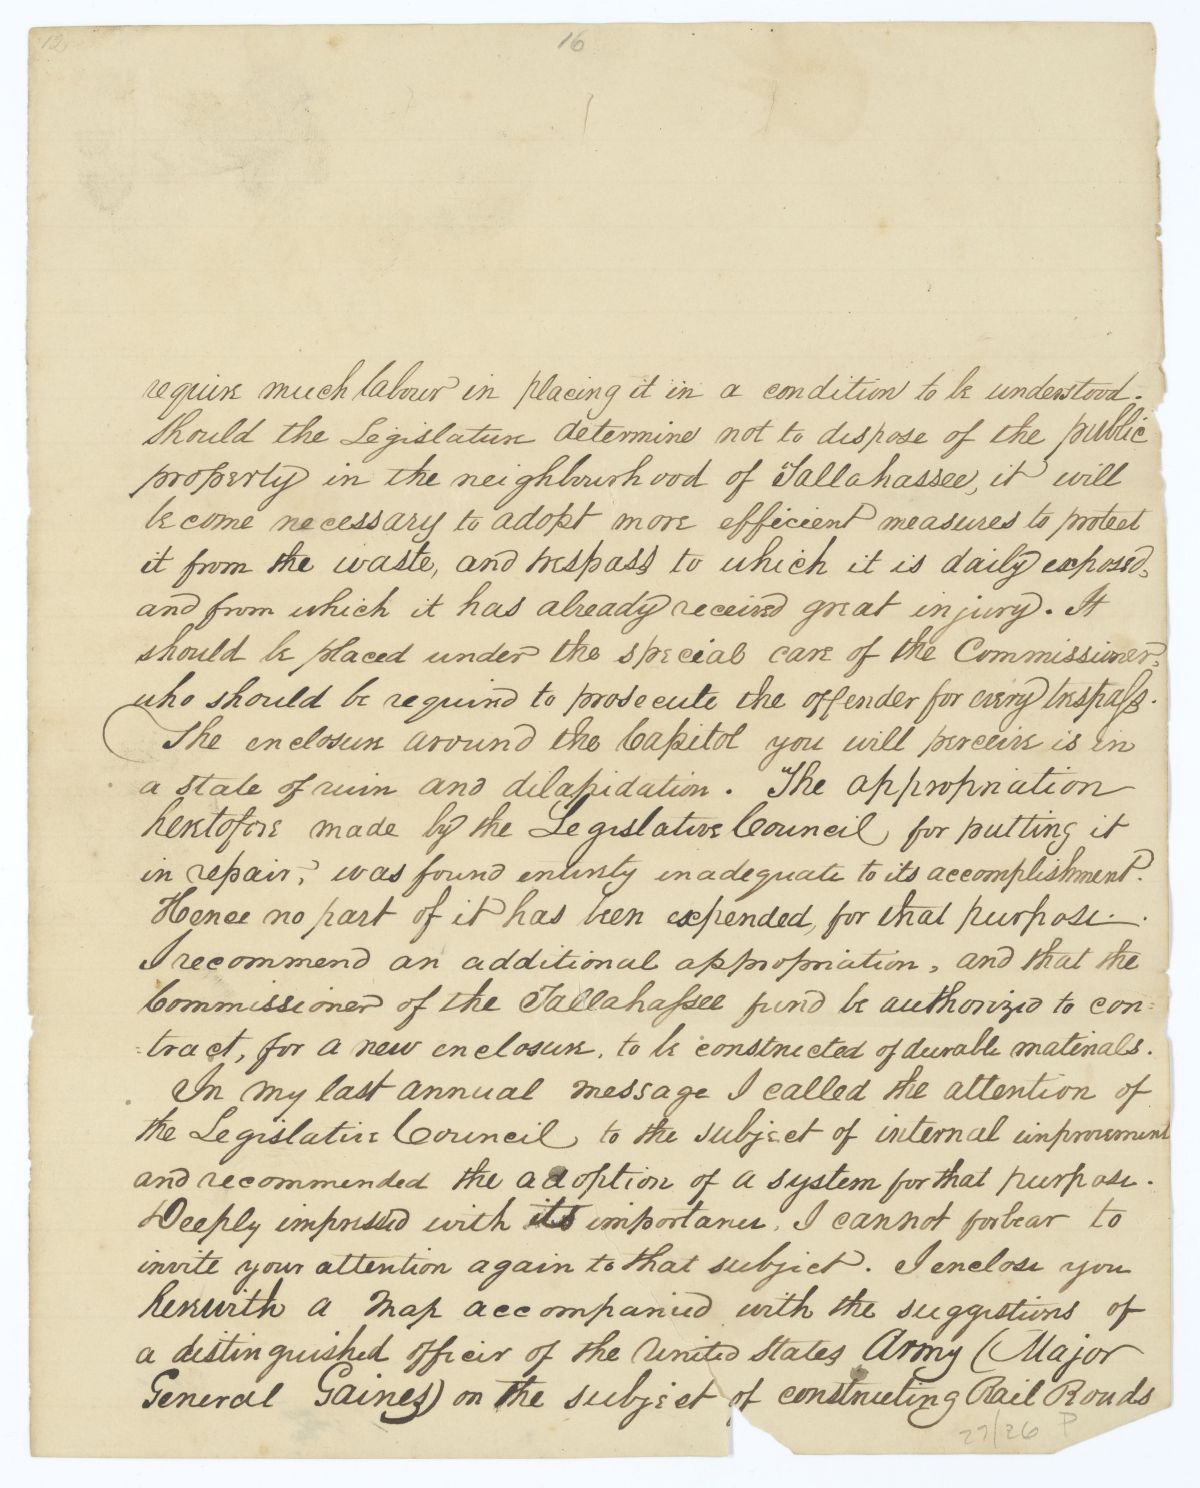 12 16
require much labour in placing it in a condition to be understood.
Should the Legislature determine not to dispose of the public
property in the neighbourhood of Tallahassee, it will
become necessary to adopt more efficient measures to protect
it from the waste, and trespass to which it is daily exposed,
and from which it has already received great injury. It
should be placed under the special care of the Commissioner,
who should be required to prosecute the offender for every trespass.
The enclosure around the Capitol you will perceive is in
a state of ruin and dilapidation. The appropriation
heretofore made by the Legislative Council, for putting it
in repair, was found entirely inadequate to its accomplishment.
Hence no part of it has been expended, for that purpose.
I recommend an additional appropriation, and that the
Commissioner of the Tallahassee fund be authorized to con=
=tract, for a new enclosure, to be constructed of durable materials.
In my last annual message I called the attention of
the Legislative Council, to the subject of internal improvement
and recommended the adoption of a system for that purpose.
Deeply impressed with its importance, I cannot forbear to
invite your attention again to that subject. I enclose you
herewith a map accompanied with the suggestions of
a distinguished officer of the United States Army (Major
General Gaines) on the subject of constructing Rail Roads
27/26 P